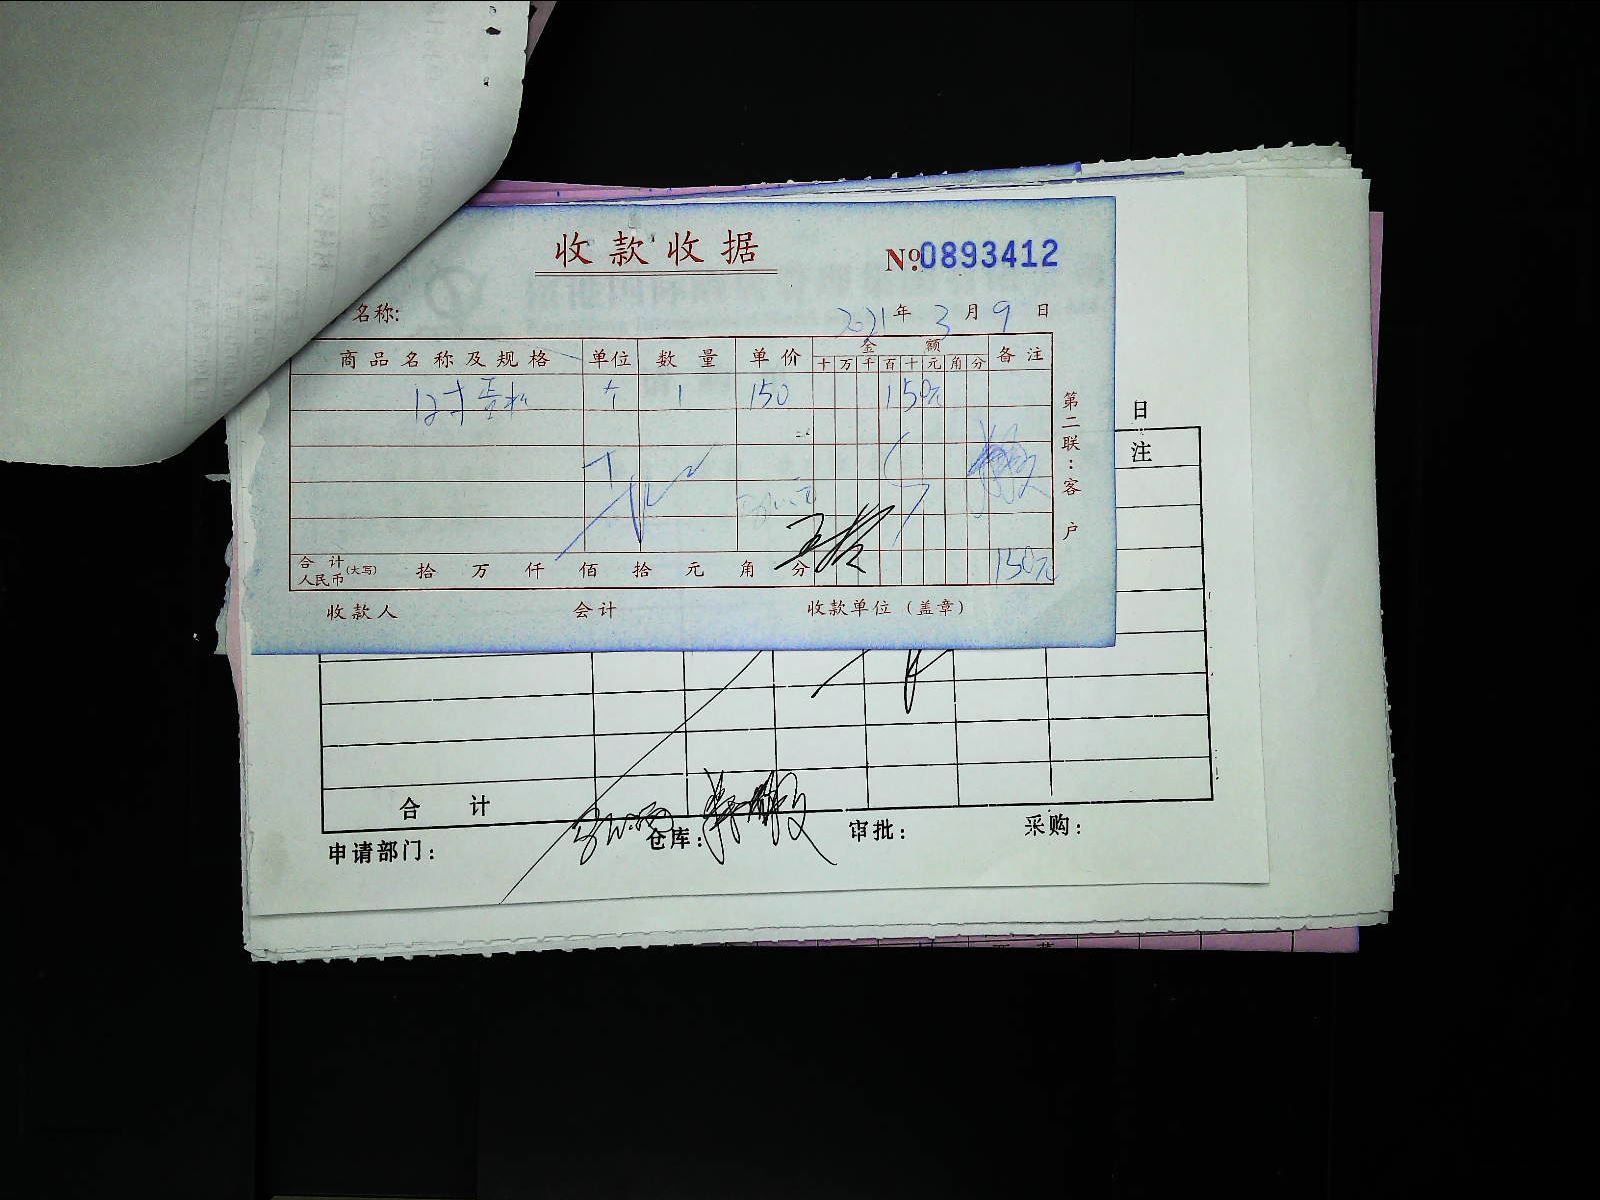 收款收据
No.0893412
名称:
2021年3月9日
商品名称及规格 单位 数量 单价 金额 备注
十万千百十元角分
12寸蛋糕 个 1 150 150元
第二联:客户
合计人民币(大写) 拾 万 仟 佰 拾 元 角 分 150元
收款人 会计 收款单位(盖章)
日
注
合计
申请部门: 仓库: 审批: 采购: